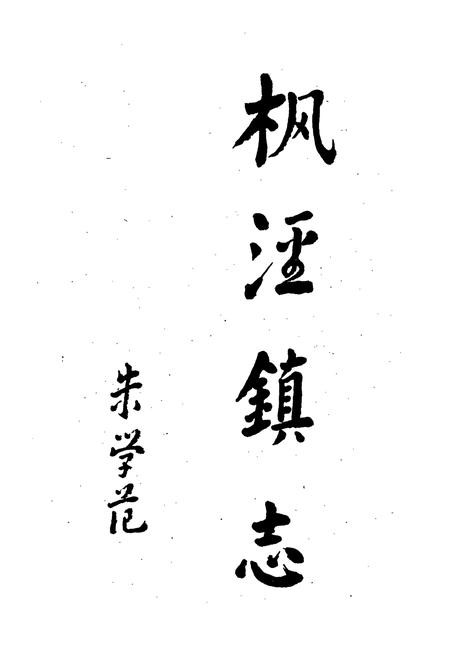 枫泾鎮志
朱学范